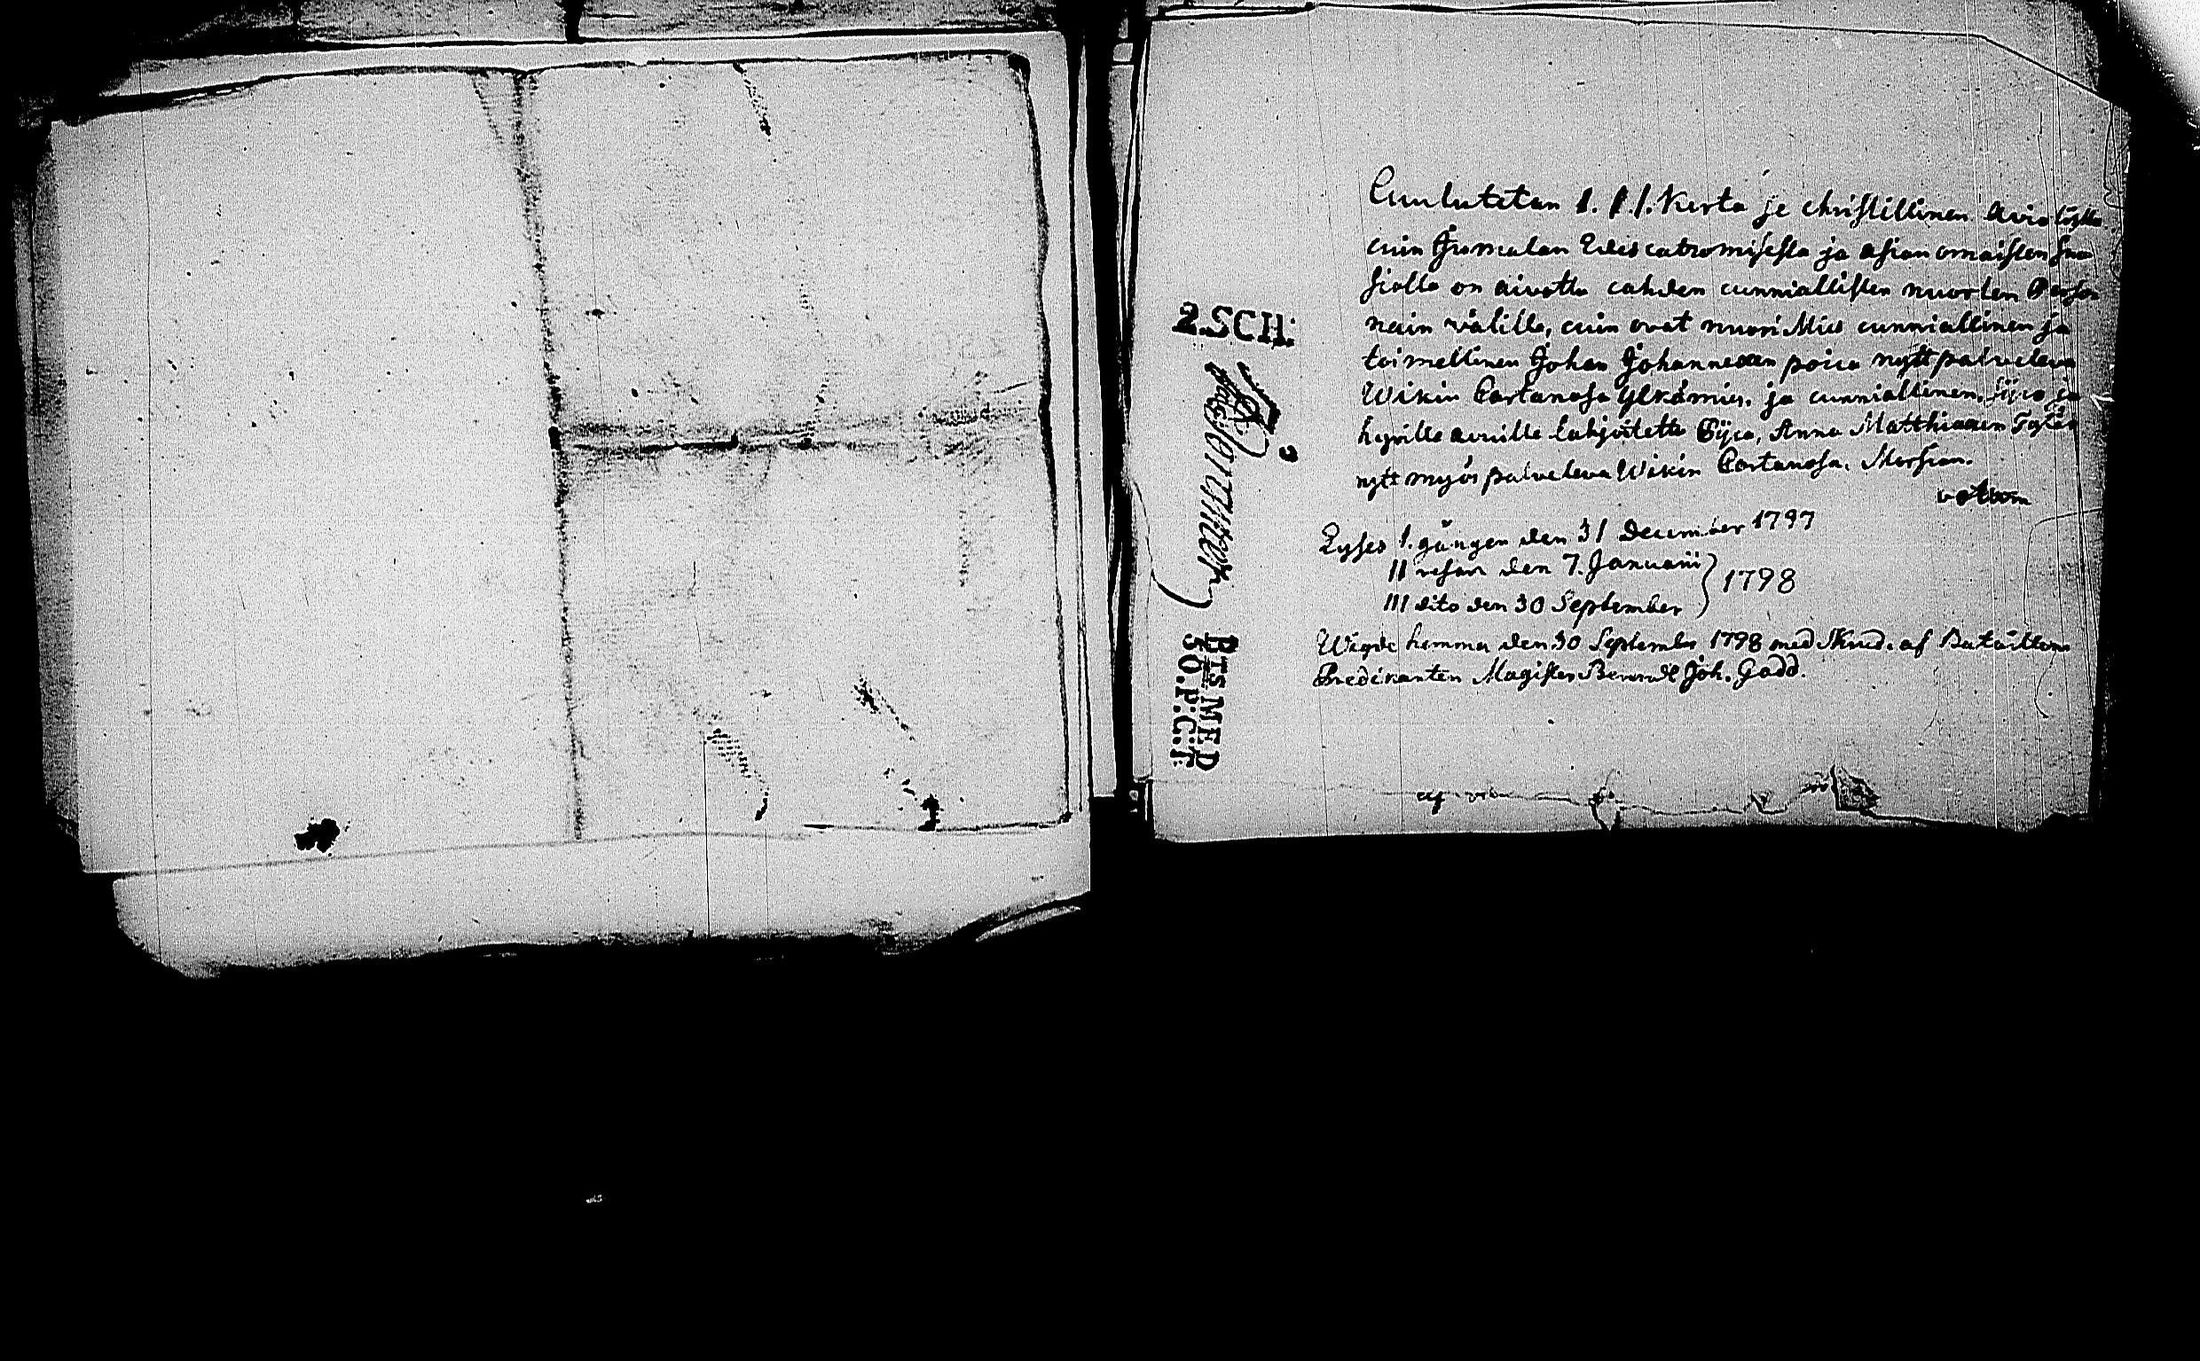 2. SCH:
PTS MED
30. P: C: T
Cuulutetan 1. 1. 1. Kerta se christillinen Avio
cuin Jumalan Edescatzomisesta ja asian omaisten suo
siolla on aivottu cahden cunniallisten nuorten Person
nain välille, cuin ovat nuori Mies cunniallinen ja
toimellinen Johan Johannexen poica nytt palveleva
Wikin Cartanosa Ylkämies, ja cunniallinen, siju ja
hyville avuille lahjoitettu Pijca, Anna Matthiaxen Tytär
nytt myös palveleva Wikin Cartanosa. Morsian.
Lyses 1. gången den 31 December 1797
II resan den 7. Januarii
III dito den 30 September } 1798
Wigde hemma den 30 September 1798 med Skud. af Bataillons
Predikanten Magister Berndt Joh. Gadd.